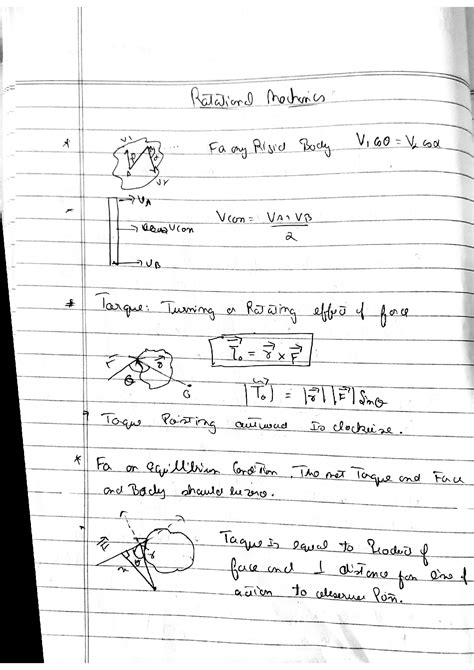 Rotational Mechanics
* V1 V2 For any Rigid Body V1 cosθ = V2 cosα
→ VA
→ Vcom Vcom = VA + VB / 2
→ VB
* Torque: Turning or Rotating effect of force
F θ r O τ₀ = r × F
|τ₀| = |r| |F| sinθ
Toque Pointing outward Is clockwise.
* For on equillibrium Condition, The net Torque and Force
ond Body should be zero.
F r θ x Torque Is equal to Product of
force and ⊥ distance from line of
action to observer Poin.